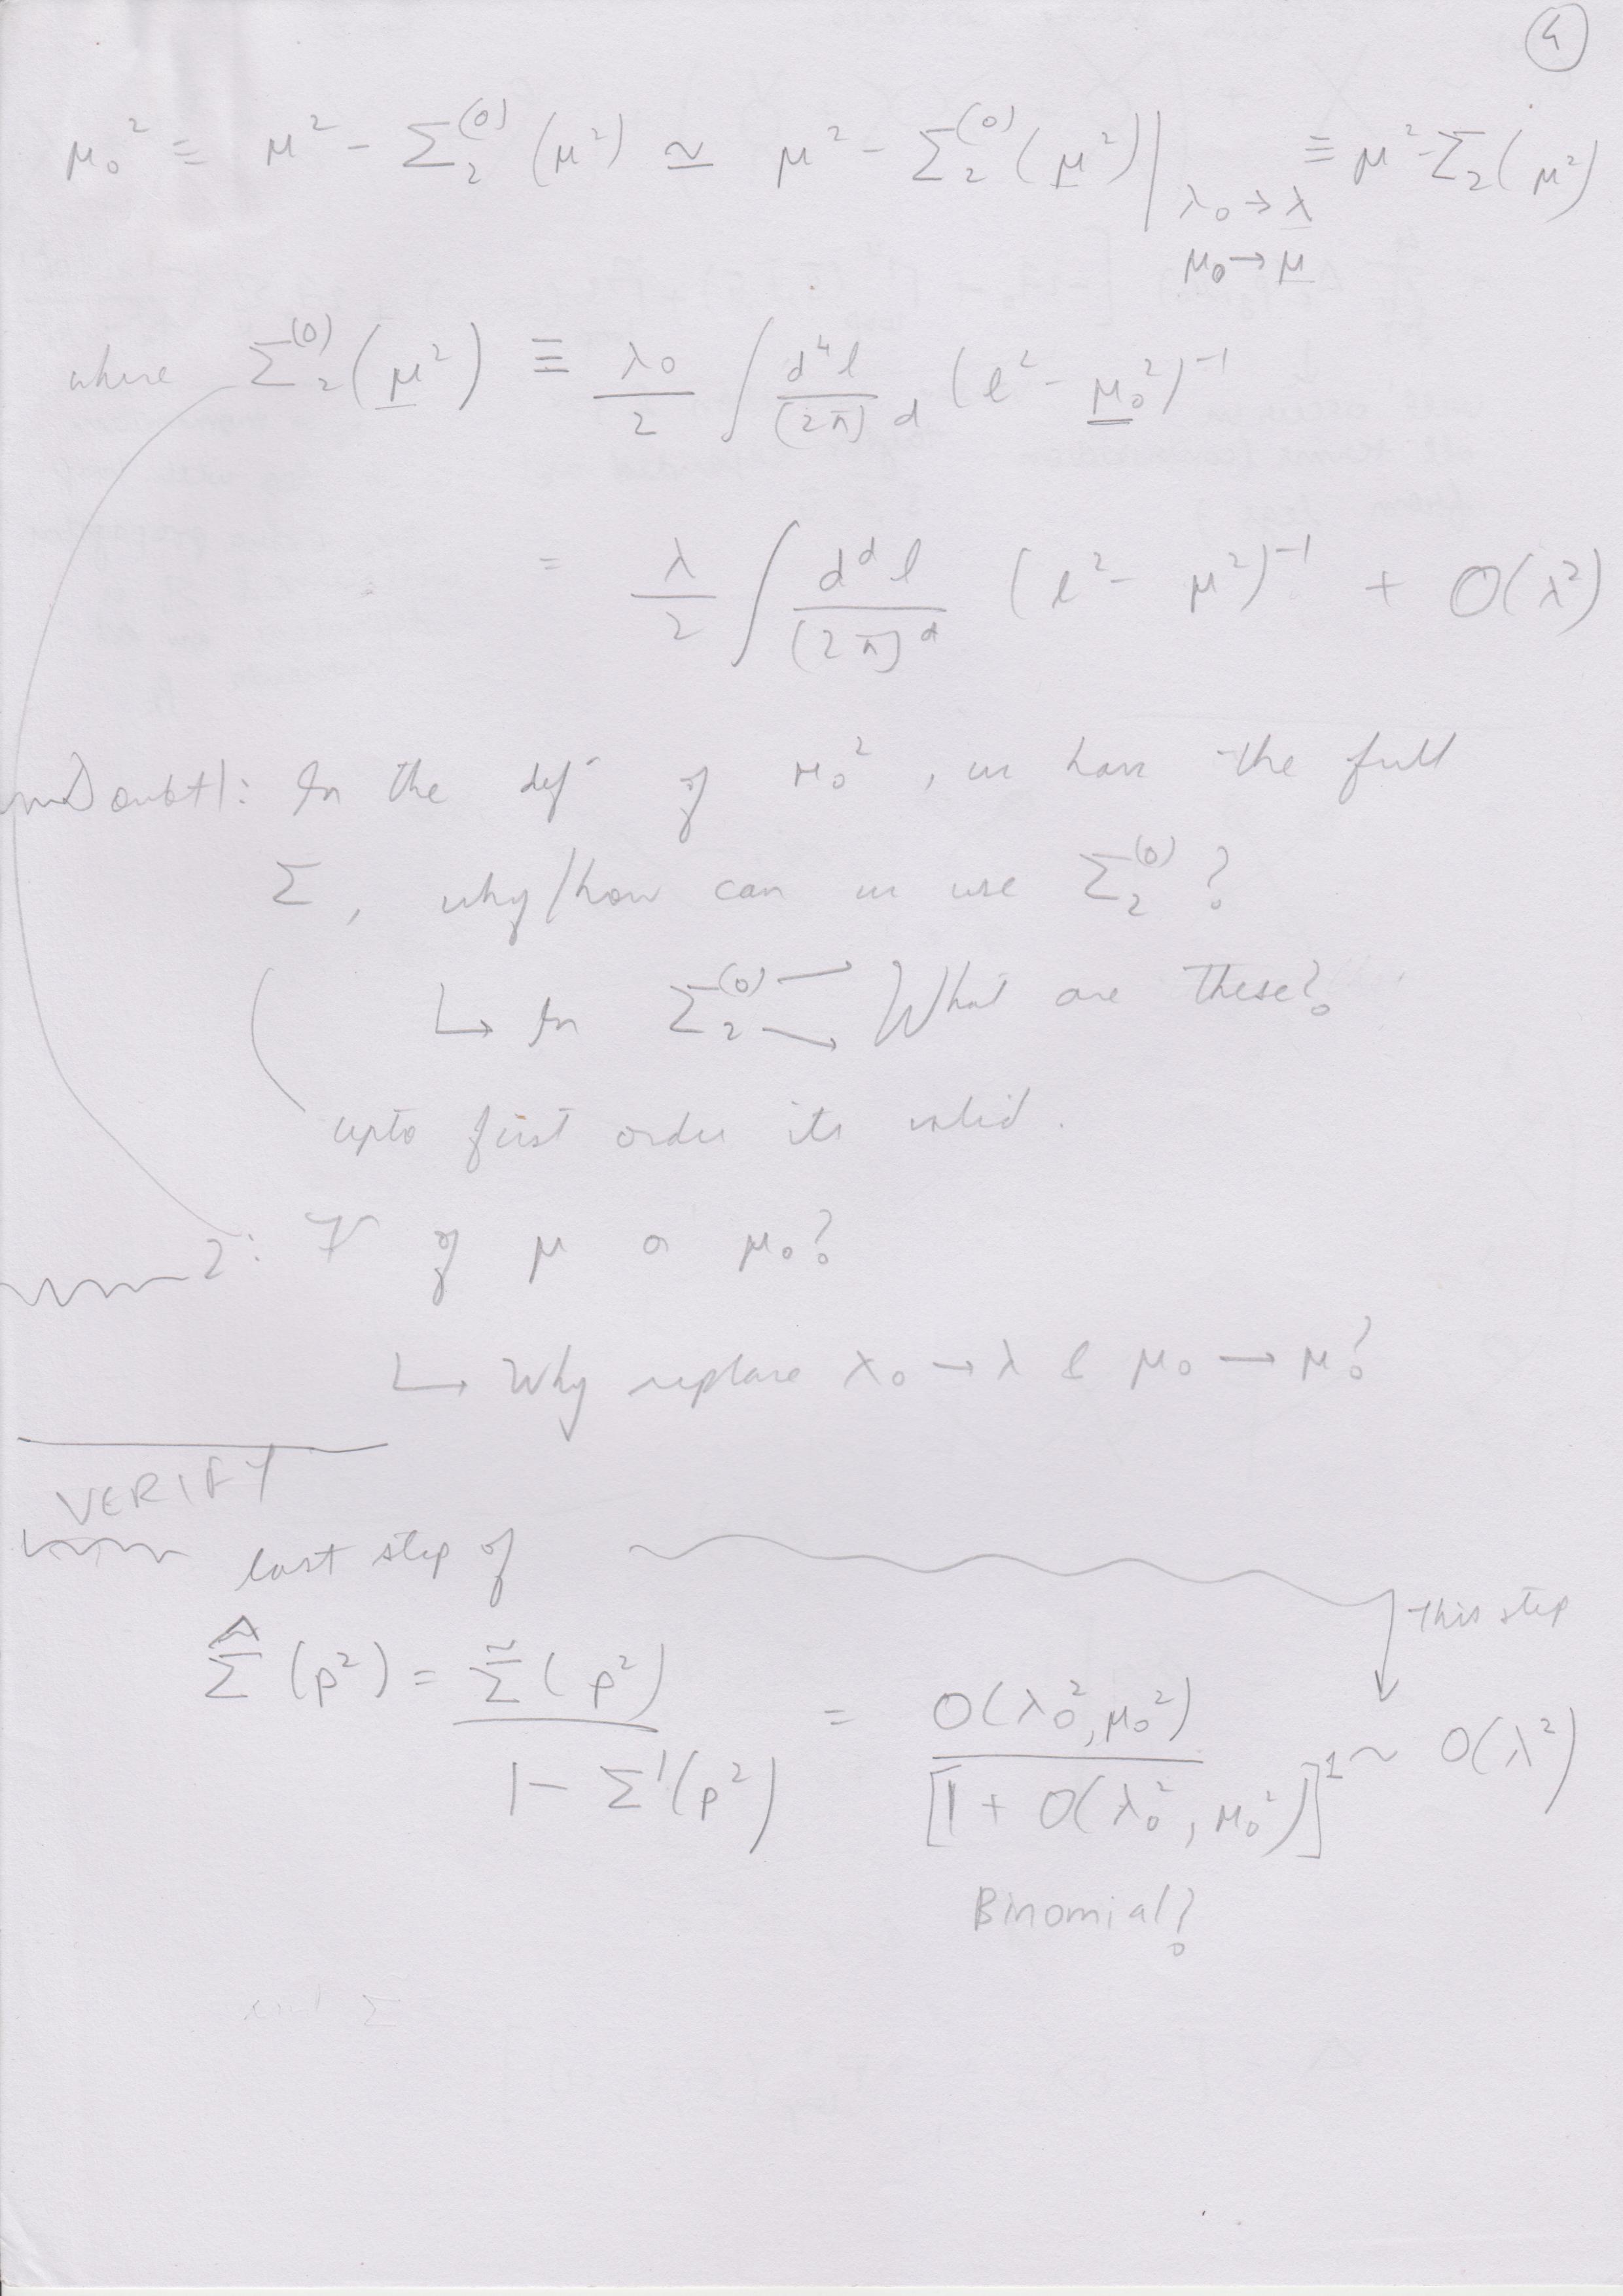 4
μ₀² ≡ μ² - Σ₂⁽⁰⁾(μ²) ≃ μ² - Σ₂⁽⁰⁾(μ²)| λ₀→λ μ₀→μ ≡ μ² - Σ₂(μ²)
where Σ₂⁽⁰⁾(μ²) ≡ λ₀/2 ∫ d⁴l/(2π)^d (l² - μ₀²)⁻¹
= λ/2 ∫ d^d l/(2π)^d (l² - μ²)⁻¹ + O(λ²)
Doubt 1: In the defⁿ of μ₀², we have the full
Σ, why/how can we use Σ₂⁽⁰⁾?
↳ In Σ₂⁽⁰⁾ → What are these?
upto first order its valid.
2: of μ or μ₀?
↳ Why replace λ₀ → λ & μ₀ → μ?
VERIFY
last step of
this step
Σ̂(p²) = Σ̃(p²)/(1 - Σ'(p²)) = O(λ₀², μ₀²)/[1 + O(λ₀², μ₀²)]¹ ~ O(λ²)
Binomial?